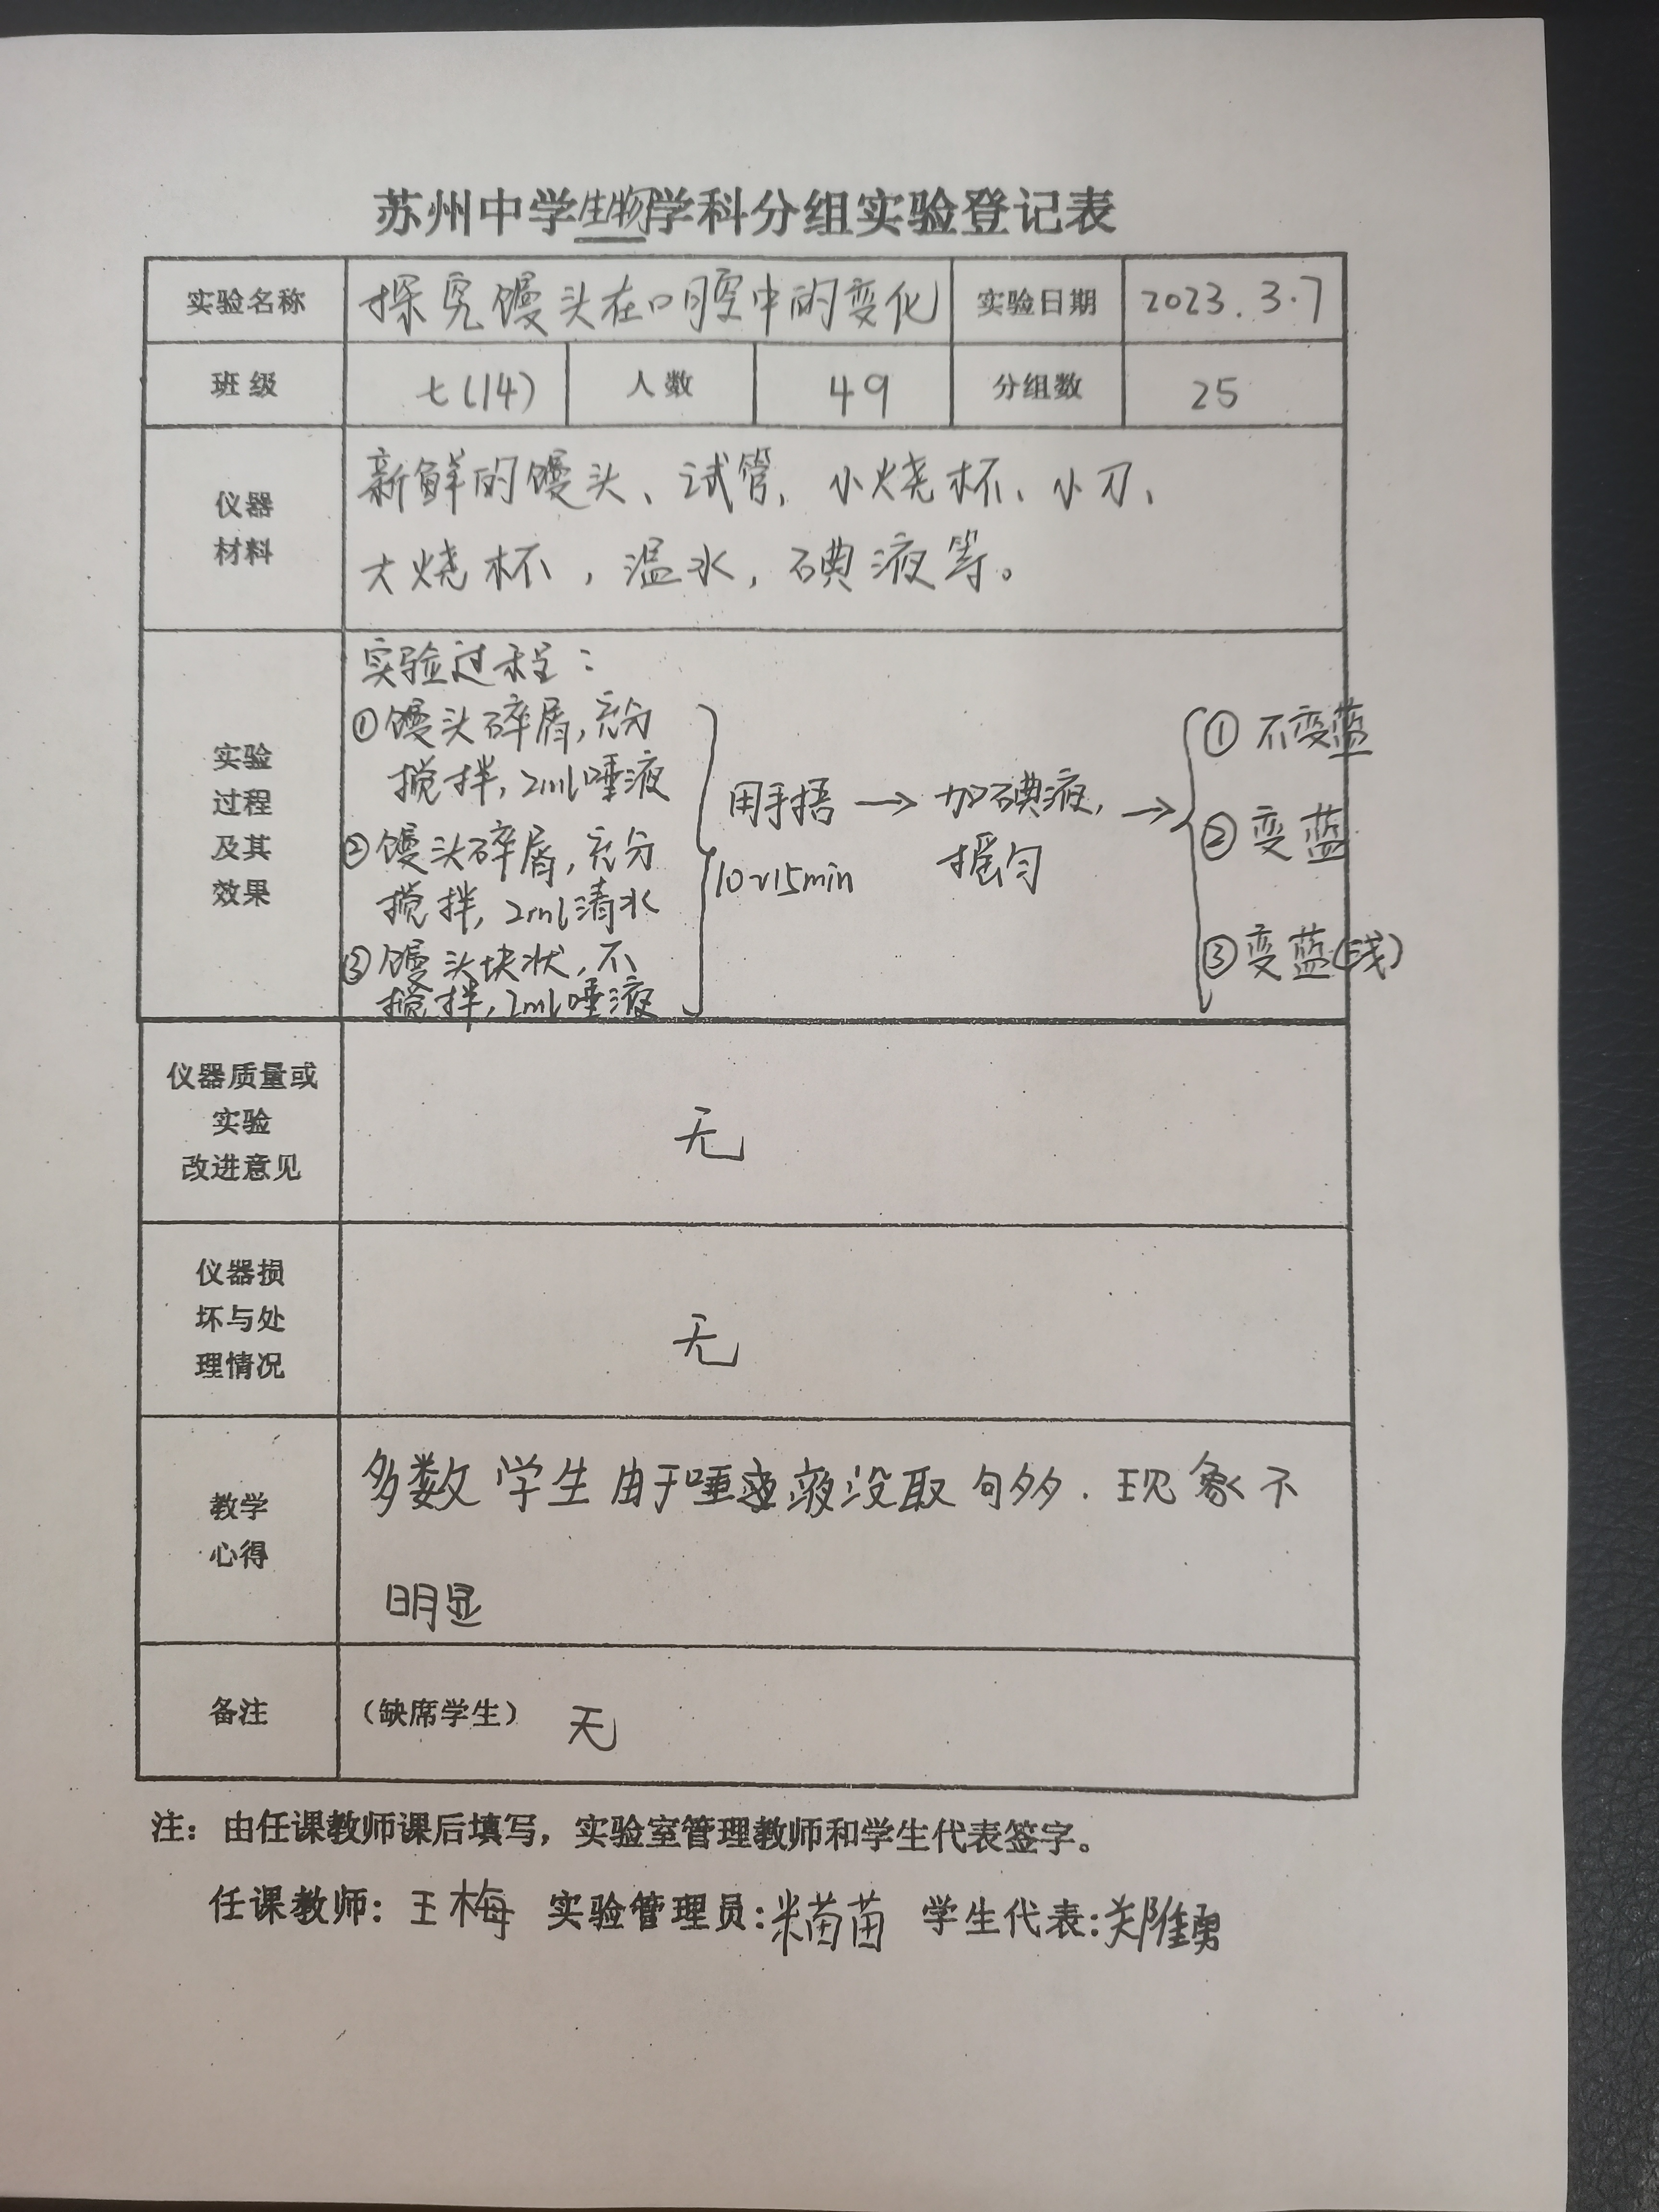 苏州中学生物学科分组实验登记表
实验名称 探究馒头在口腔中的变化 实验日期 2023.3.7
班级 七(14) 人数 49 分组数 25
仪器
材料
新鲜的馒头、试管、小烧杯、小刀、
大烧杯,温水,碘液等。
实验
过程
及其
效果
实验过程:
①馒头碎屑,充分
搅拌,2ml唾液
②馒头碎屑,充分
搅拌,2ml清水
③馒头块状,不
搅拌,2ml唾液
用手捂 → 加碘液, →
10~15min 摇匀
① 不变蓝
② 变蓝
③ 变蓝(浅)
仪器质量或
实验
改进意见
无
仪器损
坏与处
理情况
无
教学
心得
多数学生由于唾液没取句多.现象不
明显
备注 (缺席学生) 无
注:由任课教师课后填写,实验室管理教师和学生代表签字。
任课教师:王梅 实验管理员:米苗苗 学生代表:郑雅勇